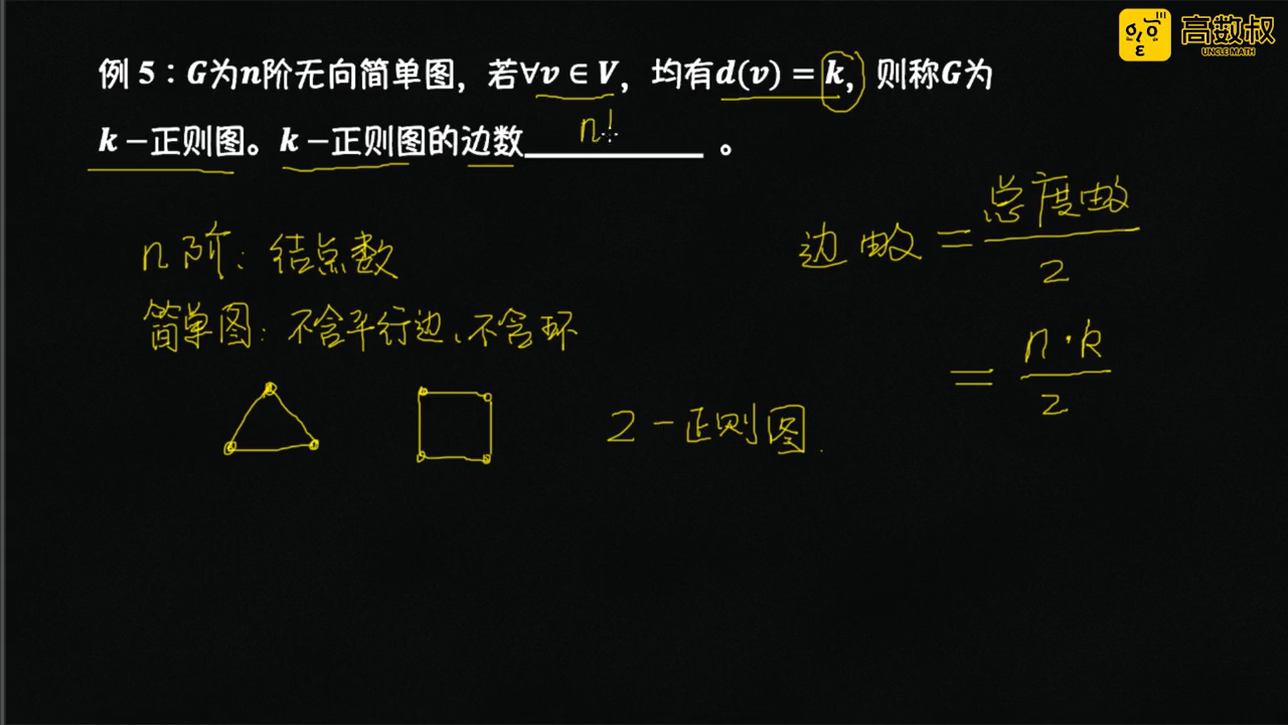 高数叔
UNCLE MATH
例 5：G为n阶无向简单图，若∀v ∈ V，均有d(v) = k，则称G为
k －正则图。k －正则图的边数 n 。
n 阶：结点数
简单图：不含平行边、不含环
2 －正则图.
边数 = 总度数 / 2
= n · k / 2